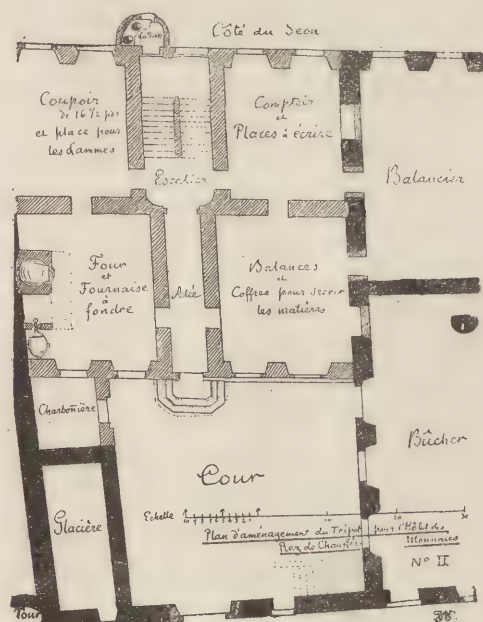 Côté du Seon
Coupoir
de 16 1/2 pds
et place pour
les Lammes
Comptoir
et
Places à écrire
Escalier
Balancier
Four
et
Fournaise
à
fondre
Alée
Balances
et
Coffres pour serrer
les matières
Charbonière
Cour
Bûcher
Glacière
Echelle
10
20
30
Plan d'aménagement du Tripot pour l'Hôtel des
Monnaies
Rez de Chaussée
N° II
Tour